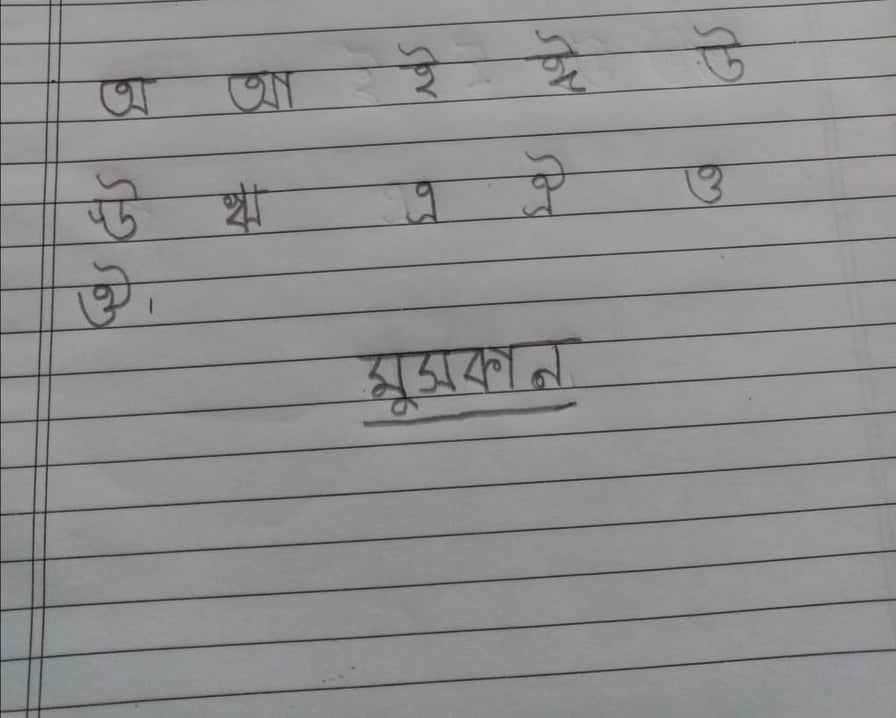 অ আ ই ঈ উ
ঊ ঋ এ ঐ ও
ঔ।
মুসকান